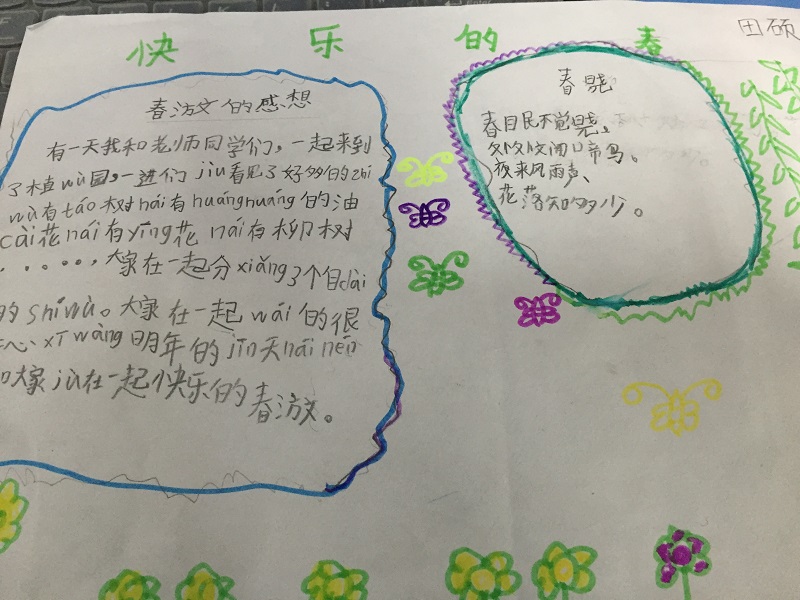 快乐的春
田硕
春游文的感想
有一天我和老师同学们，一起来到
了植wù园，一进们jiù看见了好多的zhí
wù有táo树hái有huánghuáng的油
cài花hái有yīng花 hái有柳树
......，大家在一起分xiǎng了个自dài
的shíwù。大家在一起wái的很
心、xīwàng明年的jīn天hái nén
和大家jù在一起快乐的春游。
春晓
春目民不觉晓，
处处闻口帝鸟。
夜来风雨声、
花落知多少。